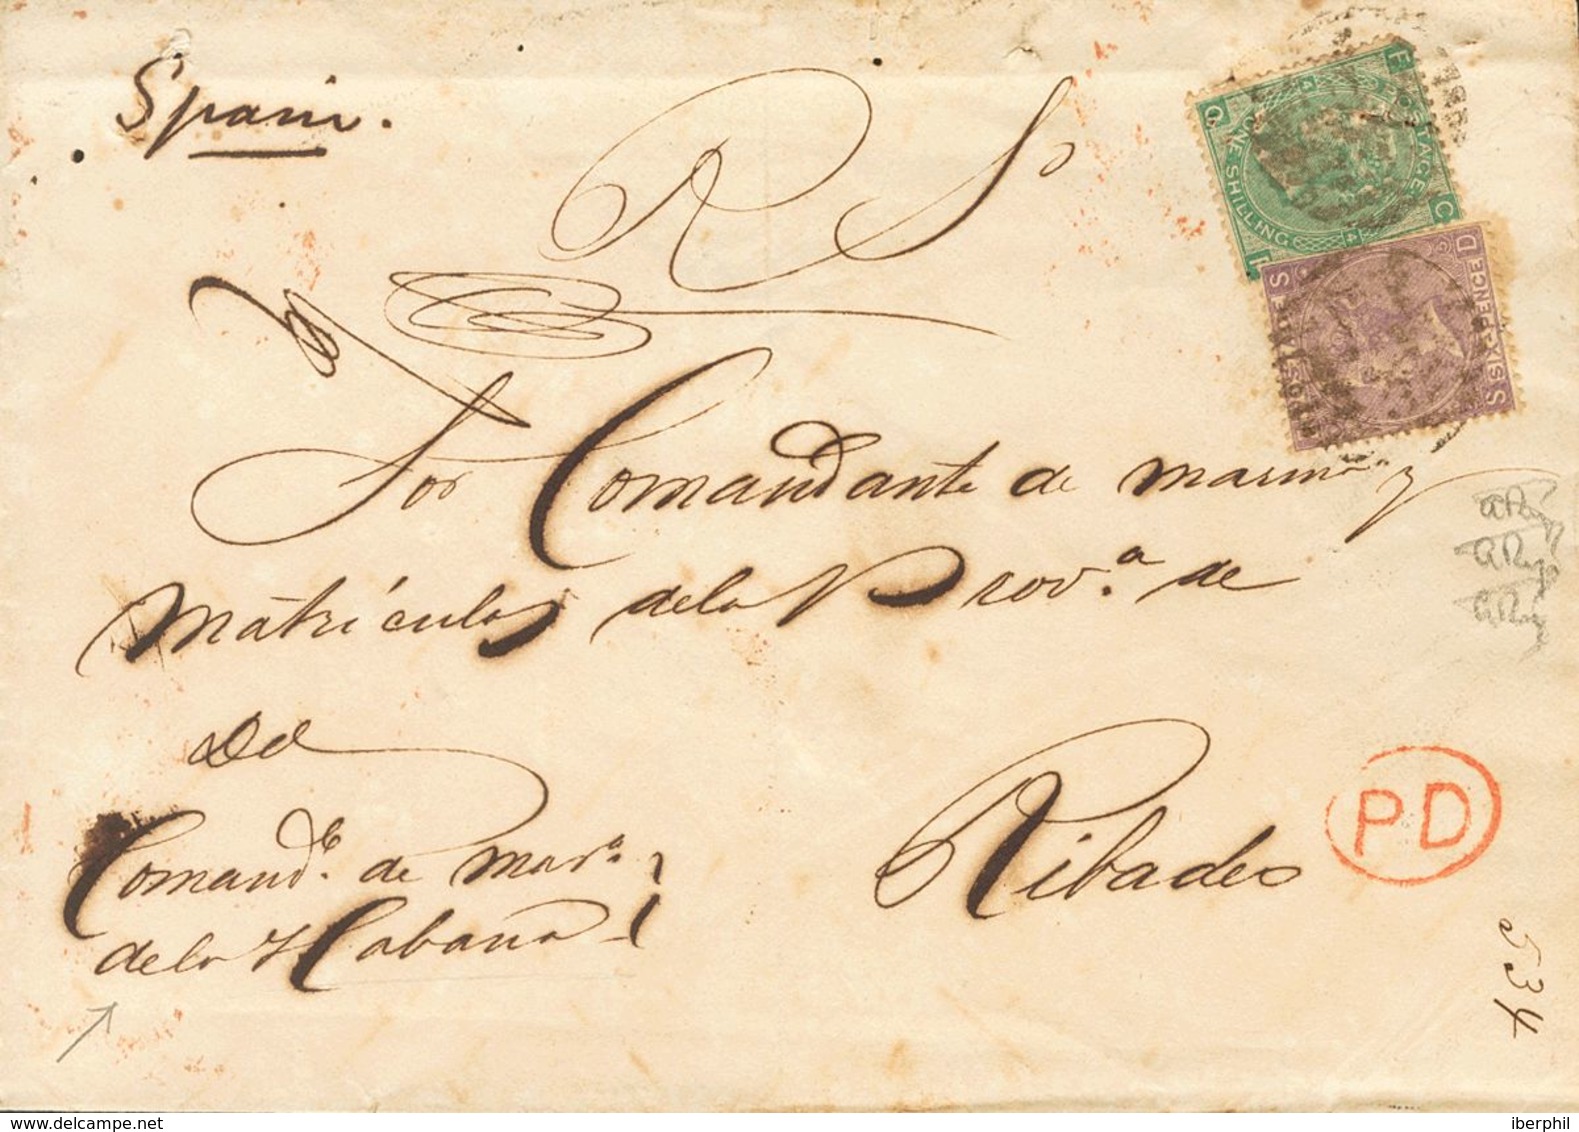 Spain.
R S
Sor Comandante de marina y
Matrículas de la Prov.ª de
Ribadeo
Del
Comand.te de Mar.a
de la Habana
PD
534
POSTAGE
ONE SHILLING
Q
E
C
4
4
POSTAGE
SIX-PENCE
S
D
S
www.delcampe.net
iberphil